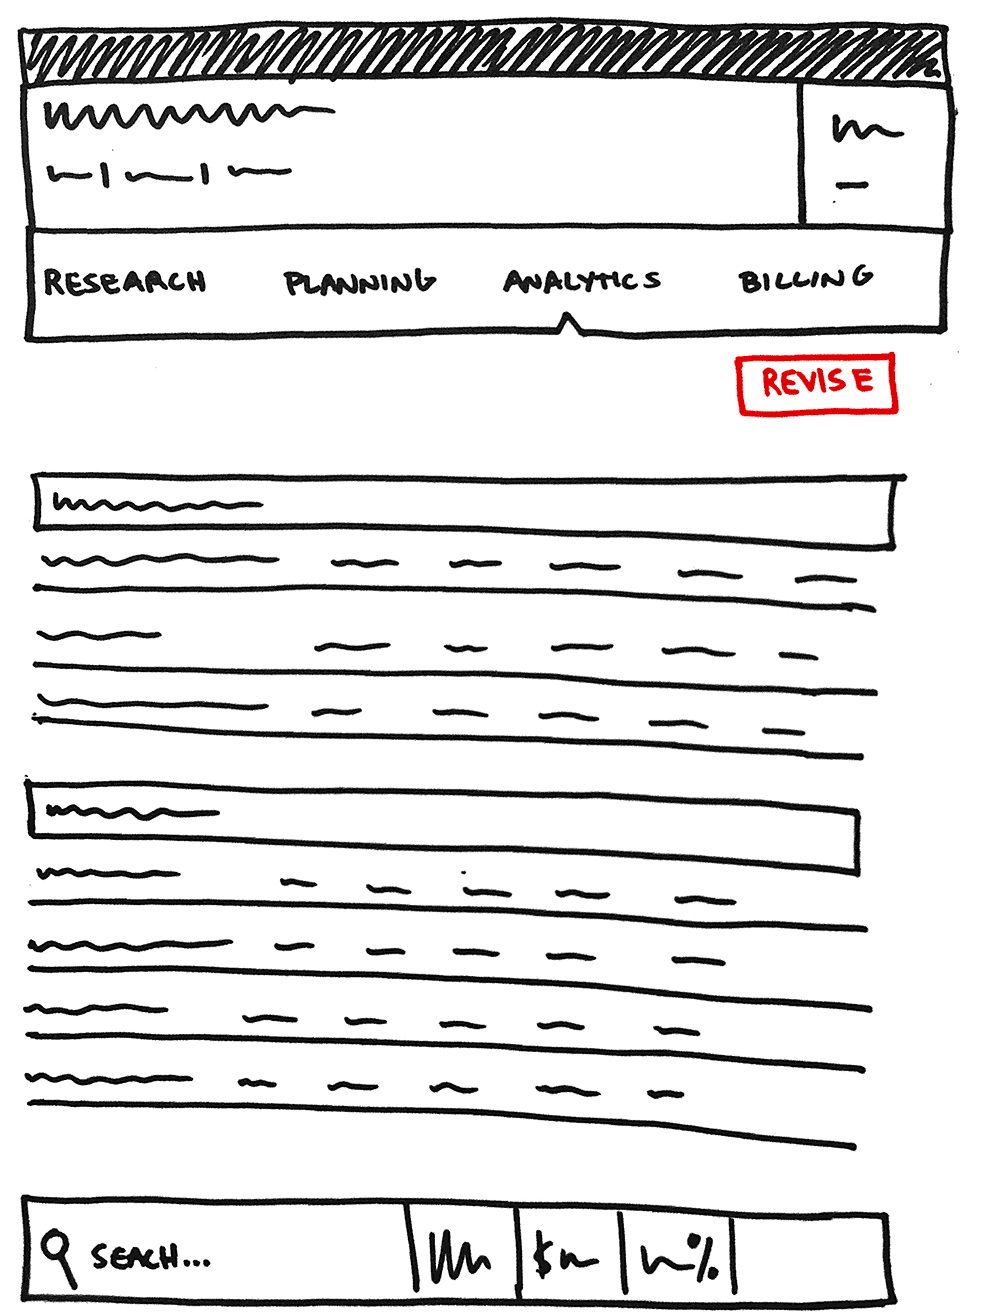 RESEARCH PLANNING ANALYTICS BILLING
REVISE
SEACH...
$
%